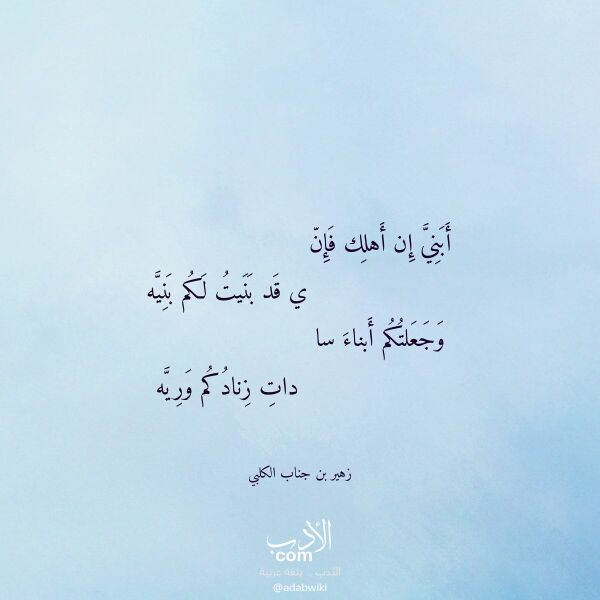 أَبَنِيَّ إِن أَهلِك فَإِنّ
ي قَد بَنَيتُ لَكُم بَنِيَّه
وَجَعَلتُكُم أَبناءَ سا
داتِ زِنادُكُم وَرِيَّه
زهير بن جناب الكلبي
الأدب
com
الأدب .. بلغة عربية
@adabwiki